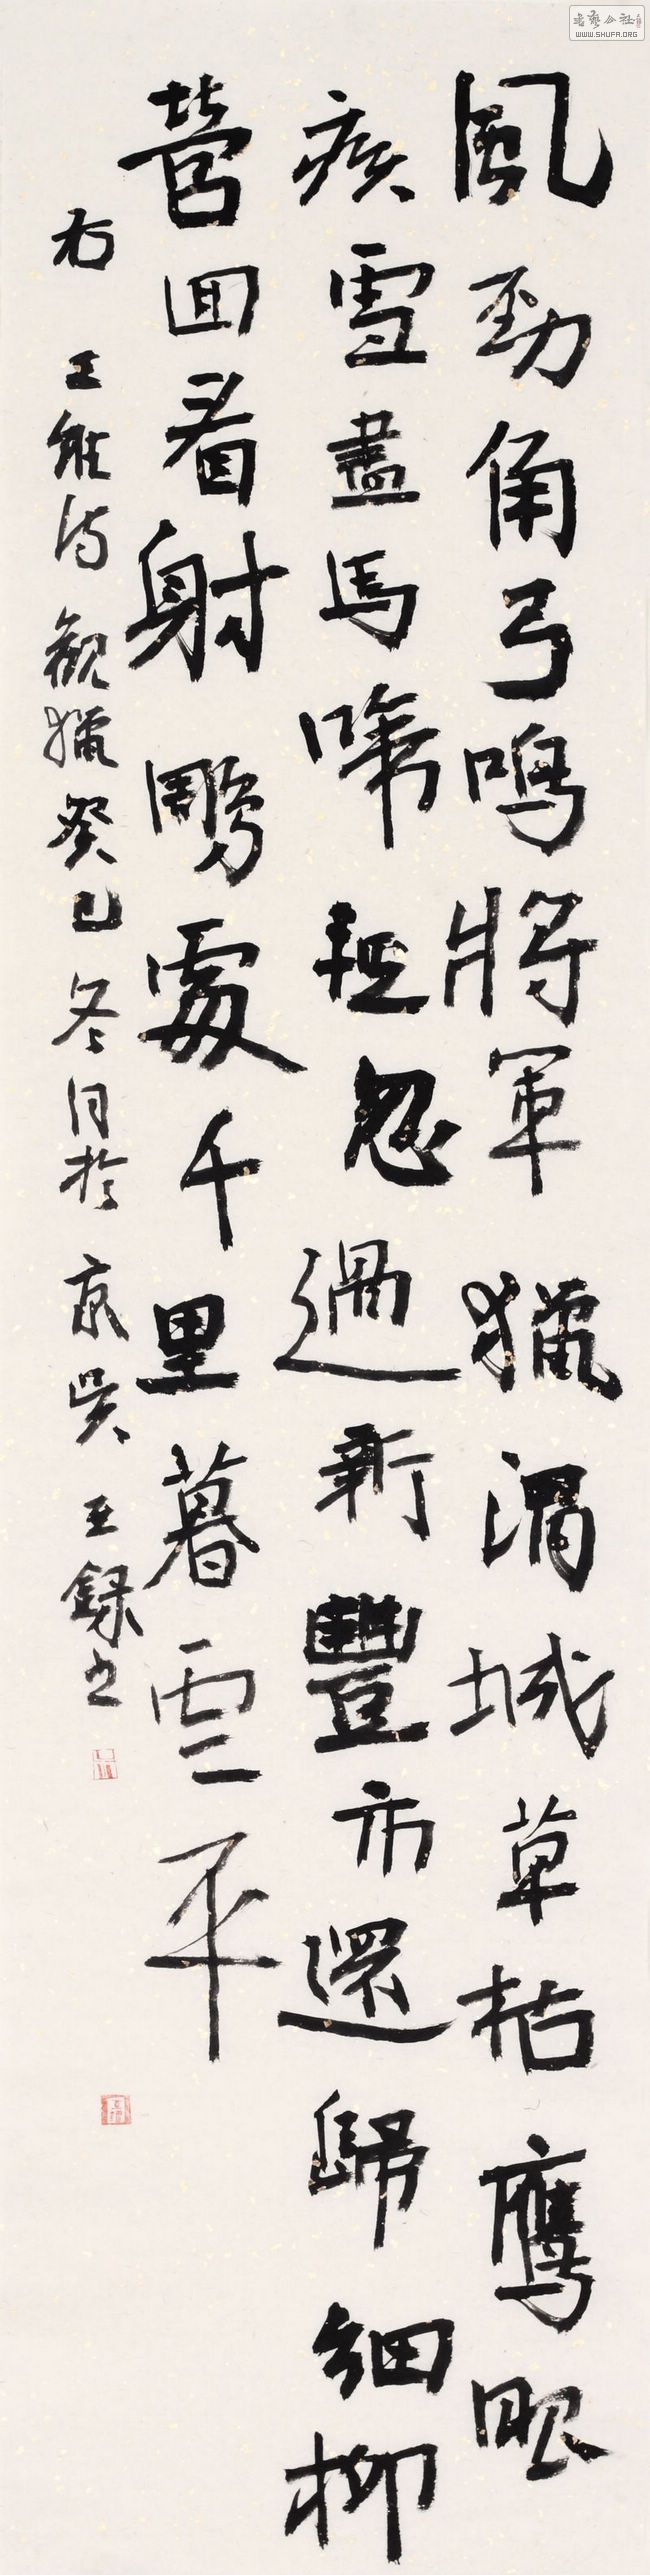 風勁角弓鳴將軍獵渭城草枯鷹眼
疾雪盡馬啼輕忽過新豐市還歸細柳
營回看射鵰處千里暮雲平
右 王維詩觀獵癸巳冬日於京 吳玉錄書
WWW.SHUFA.ORG